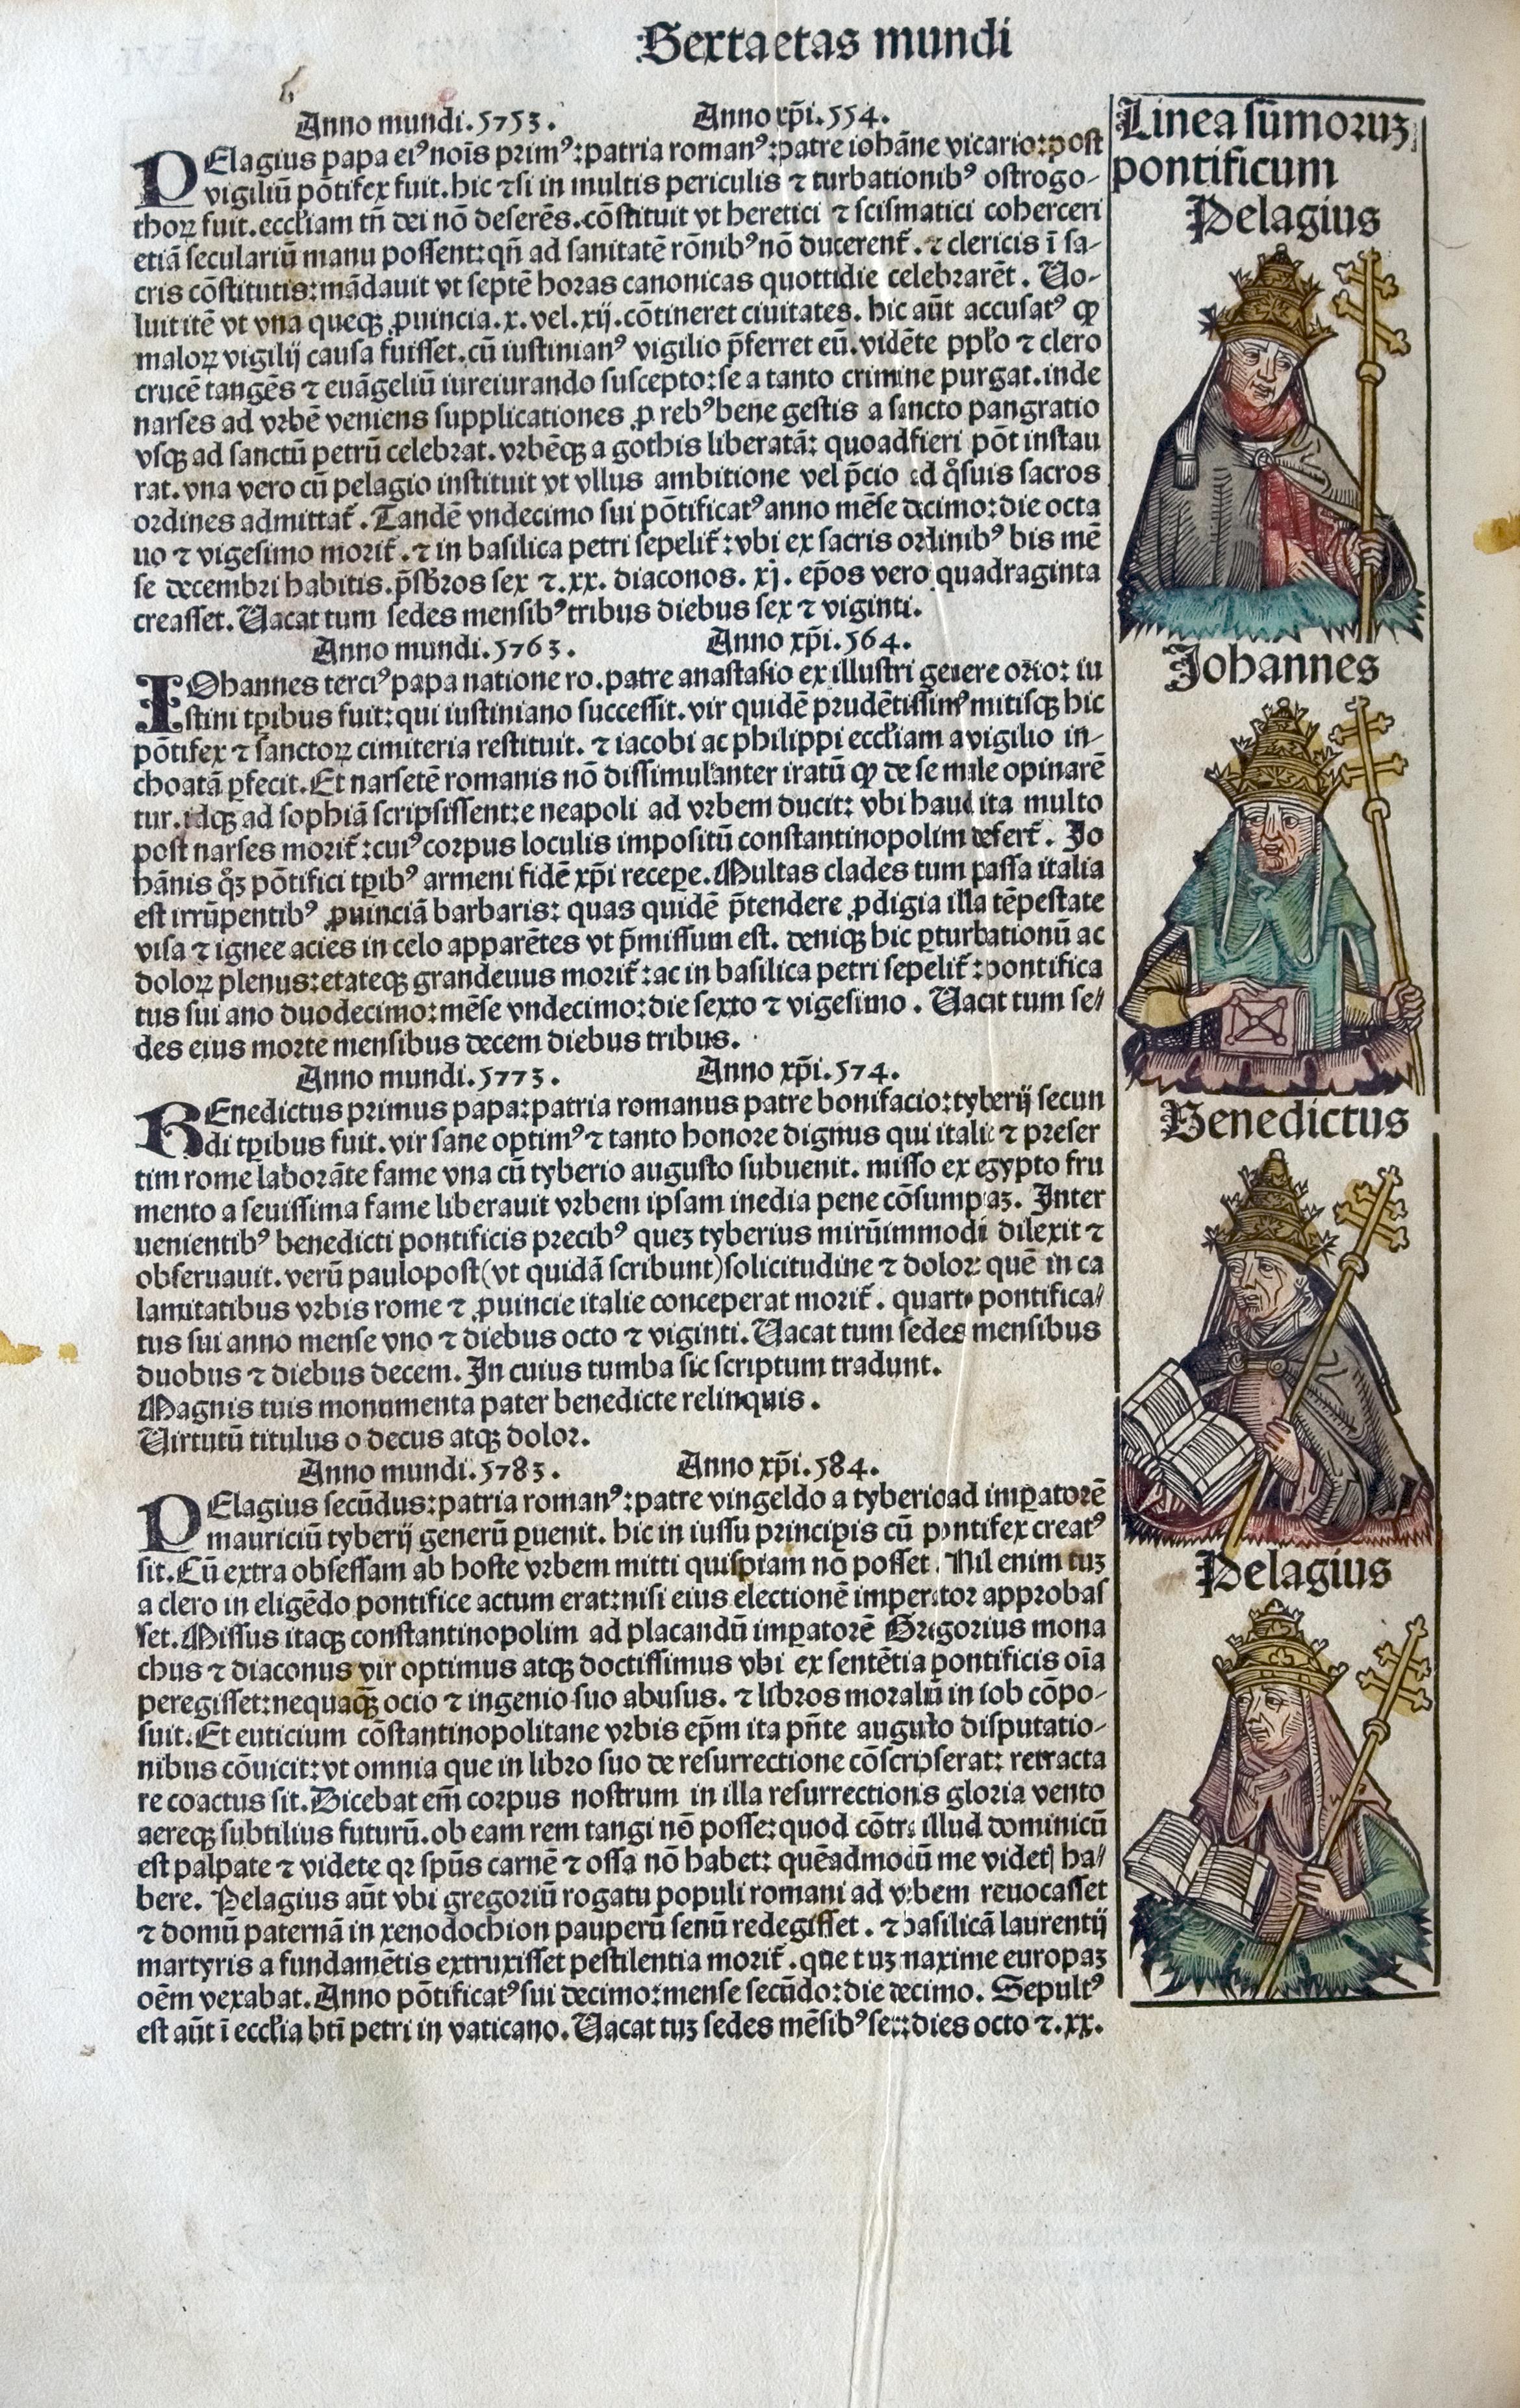 Sexta etas mundi
Anno mundi.5753. Anno xp̄i.554.
PElagius papa ei⁹ noīs prim⁹:patria roman⁹:patre iohāne vicario:post
vigiliū pōtifex fuit.hic ⁊si in multis periculis ⁊ turbationib⁹ ostrogo-
thoꝝ fuit.eccl̄iam tn̄ dei nō deserēs.cōstituit vt heretici ⁊ scismatici coherceri
etiā seculariū manu possent:qn̄ ad sanitatē rōnib⁹ nō ducerent̄. ⁊ clericis ī sa-
cris cōstitutis:mādauit vt septē horas canonicas quottidie celebrarēt. Uo-
luit itē vt vna queqꝫ ꝓuincia.x.vel.xij.cōtineret ciuitates. hic aūt accusat⁹ ꝙ
maloꝝ vigilij causa fuisset.cū iustinian⁹ vigilio p̄ferret eū.vidēte pp̄lo ⁊ clero
crucē tangēs ⁊ euāgeliū iureiurando suscepto:se a tanto crimine purgat.inde
narses ad vrbē veniens supplicationes ꝓ reb⁹ bene gestis a sancto pangratio
vsqꝫ ad sanctū petrū celebrat.vrbēqꝫ a gothis liberatā: quoadfieri pōt instau
rat.vna vero cū pelagio instituit vt vllus ambitione vel p̄cio ad qͦsuis sacros
ordines admittat̄. Tandē vndecimo sui pōtificat⁹ anno mēse decimo:die octa
uo ⁊ vigesimo morit̄.⁊ in basilica petri sepelit̄:vbi ex sacris ordinib⁹ bis mē
se decembri habitis.p̄sb̄ros sex ⁊.xx. diaconos. xj. ep̄os vero quadraginta
creasset. Uacat tum sedes mensib⁹ tribus diebus sex ⁊ viginti.
Anno mundi.5763. Anno xp̄i.564.
IOhannes terci⁹ papa natione ro.patre anastasio ex illustri genere ortꝰ: iu
stini tꝑibus fuit:qui iustiniano successit.vir quidē prudētissim⁹ mitisqꝫ hic
pōtifex ⁊ sanctoꝝ cimiteria restituit. ⁊ iacobi ac philippi eccl̄iam a vigilio in-
choatā ꝑfecit.Et narsetē romanis nō dissimulanter iratū ꝙ de se male opinarē
tur.idqꝫ ad sophiā scripsissent:e neapoli ad vrbem ducit: vbi haud ita multo
post narses morit̄:cui⁹ corpus loculis impositū constantinopolim defert̄. Jo
hānis qͦꝫ pōtifici tꝑib⁹ armeni fidē xp̄i recepe.Multas clades tum passa italia
est irrūpentib⁹ ꝓuinciā barbaris: quas quidē p̄tendere ꝓdigia illa tēpestate
visa ⁊ ignee acies in celo apparētes vt p̄missum est. deniqꝫ hic ꝑturbationū ac
doloꝝ plenus:etateqꝫ grandeuus morit̄:ac in basilica petri sepelit̄:pontifica
tus sui ano duodecimo:mēse vndecimo:die sexto ⁊ vigesimo. Uacat tum se/
des eius morte mensibus decem diebus tribus.
Anno mundi.5773. Anno xp̄i.574.
BEnedictus primus papa:patria romanus patre bonifacio:tyberij secun
di tꝑibus fuit.vir sane optim⁹ ⁊ tanto honore dignus qui italie ⁊ preser
tim rome laborāte fame vna cū tyberio augusto subuenit. misso ex egypto fru
mento a seuissima fame liberauit vrbem ipsam inedia pene cōsumptaꝫ. Inter
uenientib⁹ benedicti pontificis precib⁹ queꝫ tyberius mirūimmodi dilexit ⁊
obseruauit.verū paulopost(vt quidā scribunt)solicitudine ⁊ dolor: quē in ca
lamitatibus vrbis rome ⁊ ꝓuincie italie conceperat morit̄. quarto pontifica/
tus sui anno mense vno ⁊ diebus octo ⁊ viginti. Uacat tum sedes mensibus
duobus ⁊ diebus decem. In cuius tumba sic scriptum tradunt.
Magnis tuis monumenta pater benedicte relinquis.
Uirtutū titulus o decus atqꝫ dolor.
Anno mundi.5783. Anno xp̄i.584.
PElagius secūdus:patria roman⁹:patre vingeldo a tyberio ad imꝑatorē
mauriciū tyberij generū ꝑuenit. hic in iussu principis cū pontifex creat⁹
sit.Cū extra obsessam ab hoste vrbem mitti quispiam nō posset. Nil enim tuꝫ
a clero in eligēdo pontifice actum erat:nisi eius electionē imperator approbas
set.Missus itaqꝫ constantinopolim ad placandū imꝑatorē Gregorius mona
chus ⁊ diaconus vir optimus atqꝫ doctissimus vbi ex sentētia pontificis oīa
peregisset:nequaqꝫ̄ ocio ⁊ ingenio suo abusus. ⁊ libros moraliū in iob cōpo-
suit.Et euticium cōstantinopolitane vrbis ep̄m ita pn̄te augusto disputatio-
nibus cōuicit:vt omnia que in libro suo de resurrectione cōscripserat: retracta
re coactus sit.Dicebat em̄ corpus nostrum in illa resurrectionis gloria vento
aereqꝫ subtilius futurū.ob eam rem tangi nō posse:quod cōtra illud dominicū
est palpate ⁊ videte qꝛ spūs carnē ⁊ ossa nō habet: quēadmodū me videtꝭ ha/
bere. Pelagius aūt vbi gregoriū rogatu populi romani ad vrbem reuocasset
⁊ domū paternā in xenodochion pauperū senū redegisset. ⁊ basilicā laurentij
martyris a fundamētis extruxisset pestilentia morit̄.que tuꝫ maxime europaꝫ
oēm vexabat.Anno pōtificat⁹ sui decimo:mense secūdo:die decimo. Sepult⁹
est aūt ī eccl̄ia bt̄i petri in vaticano.Uacat tuꝫ sedes mēsib⁹ sex:dies octo ⁊.xx.
Linea sūmoruꝫ
pontificum
Pelagius
Johannes
Benedictus
Pelagius